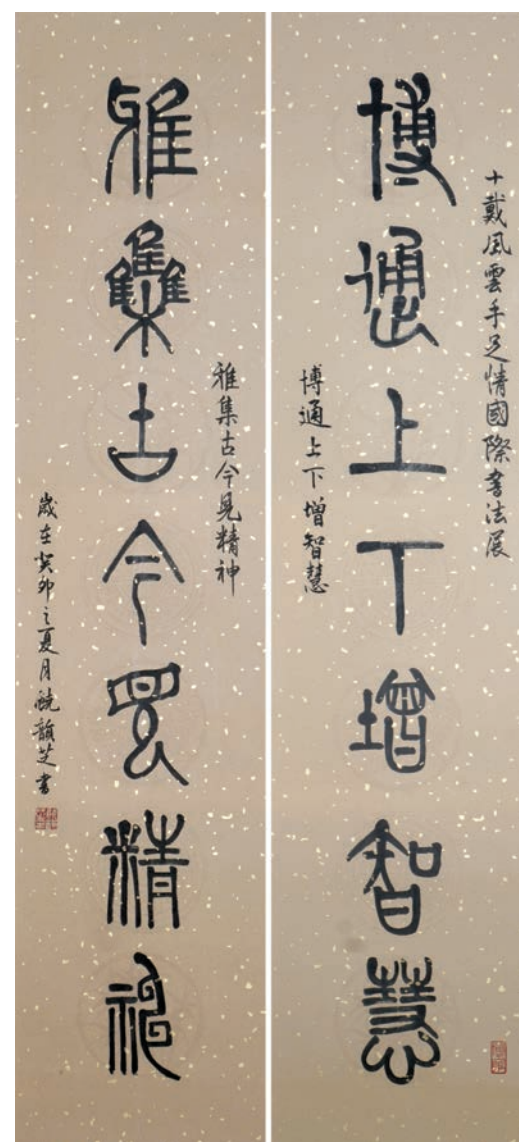 十戴風雲手足情國際書法展
博通上下增智慧
博通上下增智慧
雅集古今見精神
雅集古今見精神
歲在癸卯之夏月饒韻芝書